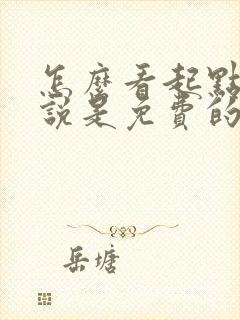 怎麼看起點
說是免費的
岳塘